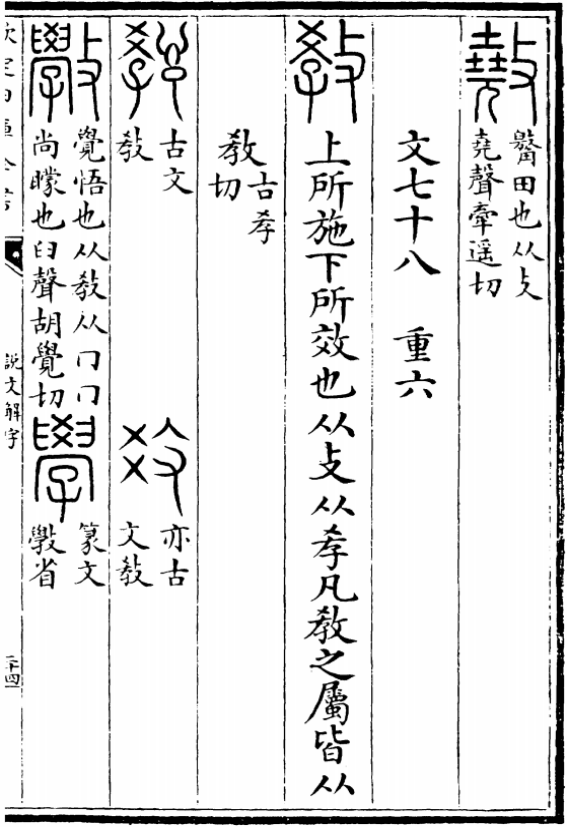 田也从攴
堯聲牽遥切
文七十八　重六
敎 上所施下所效也从攴从孝凡教之屬皆从
教 古孝
切
古文
敎
亦古
文敎
斆 覺悟也从敎从冂冂
尚矇也臼聲胡覺切
學 篆文
斆省
說文解字